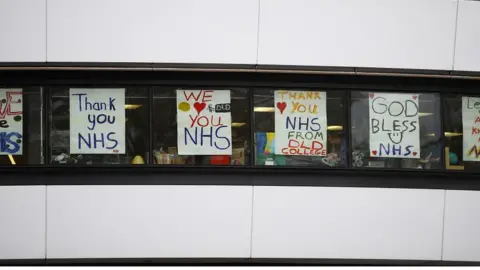 Thank
you
NHS
WE
YOU
NHS
THANK
YOU
NHS
FROM
DLD
COLLEGE
GOD
BLESS
NHS